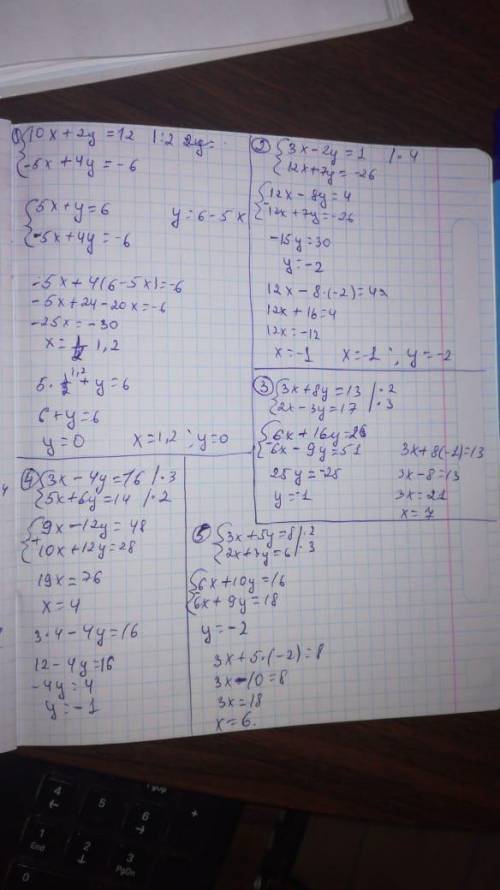 ① { 10x + 2y = 12 | :2
-5x + 4y = -6
{ 5x + y = 6 y = 6 - 5x
-5x + 4y = -6
-5x + 4(6 - 5x) = -6
-5x + 24 - 20x = -6
-25x = -30
x = 1,2
5 · 1,2 + y = 6
6 + y = 6
y = 0 x = 1,2 ; y = 0
② { 3x - 2y = 1 / · 4
12x + 7y = -26
{ 12x - 8y = 4
12x + 7y = -26
-15y = 30
y = -2
12x - 8 · (-2) = 4
12x + 16 = 4
12x = -12
x = -1 x = -1 ; y = -2
③ { 3x + 8y = 13 / · 2
2x - 3y = 17 / · 3
{ 6x + 16y = 26
6x - 9y = 51 3x + 8(-1) = 13
25y = -25 3x - 8 = 13
y = -1 3x = 21
x = 7
④ { 3x - 4y = 16 / · 3
5x + 6y = 14 / · 2
{ 9x - 12y = 48
+ 10x + 12y = 28
19x = 76
x = 4
3 · 4 - 4y = 16
12 - 4y = 16
-4y = 4
y = -1
5 { 3x + 5y = 8 / · 2
2x + 3y = 6 / · 3
{ 6x + 10y = 16
6x + 9y = 18
y = -2
3x + 5 · (-2) = 8
3x - 10 = 8
3x = 18
x = 6.
4 5 6 +
1 End 2 3 PgDn
0